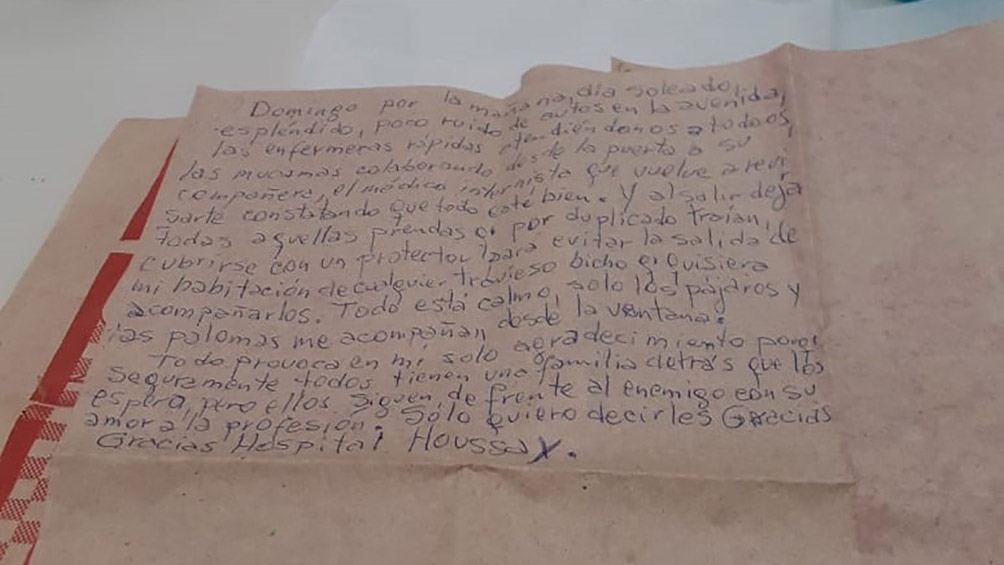 Domingo por la mañana, día soleado,
esplendido, poco ruido de autos en la avenida,
las enfermeras rápidas atendiéndonos a todos,
las mucamas colaborando desde la puerta a su
compañera, el médico internista que vuelve a revi
sarte constatando que todo esté bien. Y al salir deja
todas aquellas prendas q' por duplicado traian,
cubrirse con un protector para evitar la salida de
mi habitación de cualquier travieso bicho q' quisiera
acompañarlos. Todo está calmo, solo los pájaros y
las palomas me acompañan desde la ventana.
Todo provoca en mi solo agradecimiento porq'
seguramente todos tienen una familia detrás que los
espera, pero ellos siguen de frente al enemigo con su
amor a la profesión. Sólo quiero decirles Gracias
Gracias Hospital Houssay.